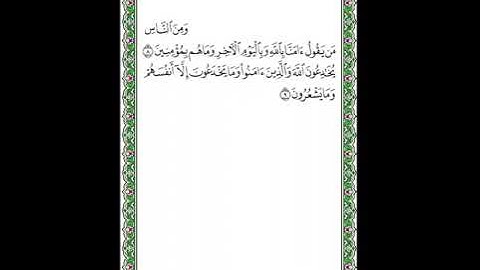 وَمِنَ ٱلنَّاسِ
مَن يَقُولُ ءَامَنَّا بِٱللَّهِ وَبِٱلْيَوْمِ ٱلْأَخِرِ وَمَا هُم بِمُؤْمِنِينَ ٨
يُخَٰدِعُونَ ٱللَّهَ وَٱلَّذِينَ ءَامَنُوا۟ وَمَا يَخْدَعُونَ إِلَّآ أَنفُسَهُمْ
وَمَا يَشْعُرُونَ ٩